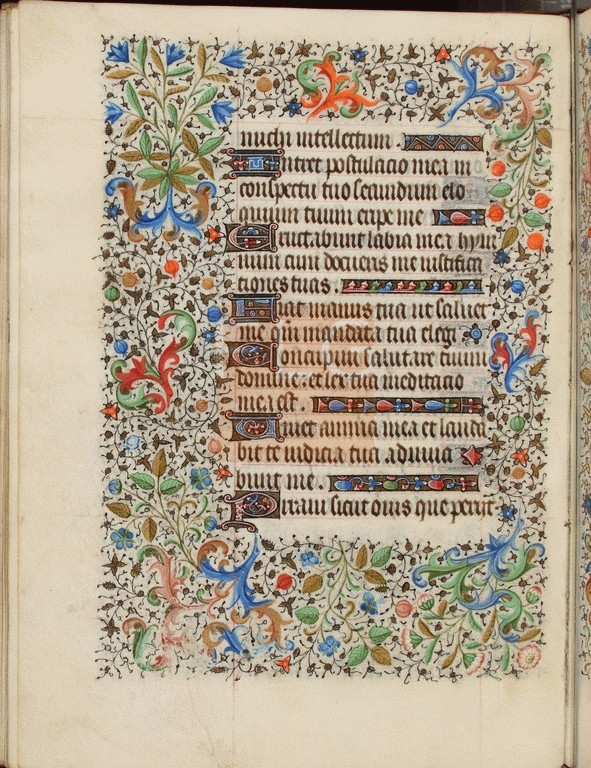 michi intellectum
Intret postulacio mea in
conspectu tuo secundum elo
quium tuum eripe me
Eructabunt labia mea hym
num cum docueris me iustifica
tiones tuas.
Fiat manus tua ut saluet
me qm̄ mandata tua elegi
Concupiui salutare tuum
domine: et lex tua meditacio
mea est.
Viuet anima mea et lauda
bit te iudicia tua adiuua
bunt me.
Erraui sicut ouis que periit